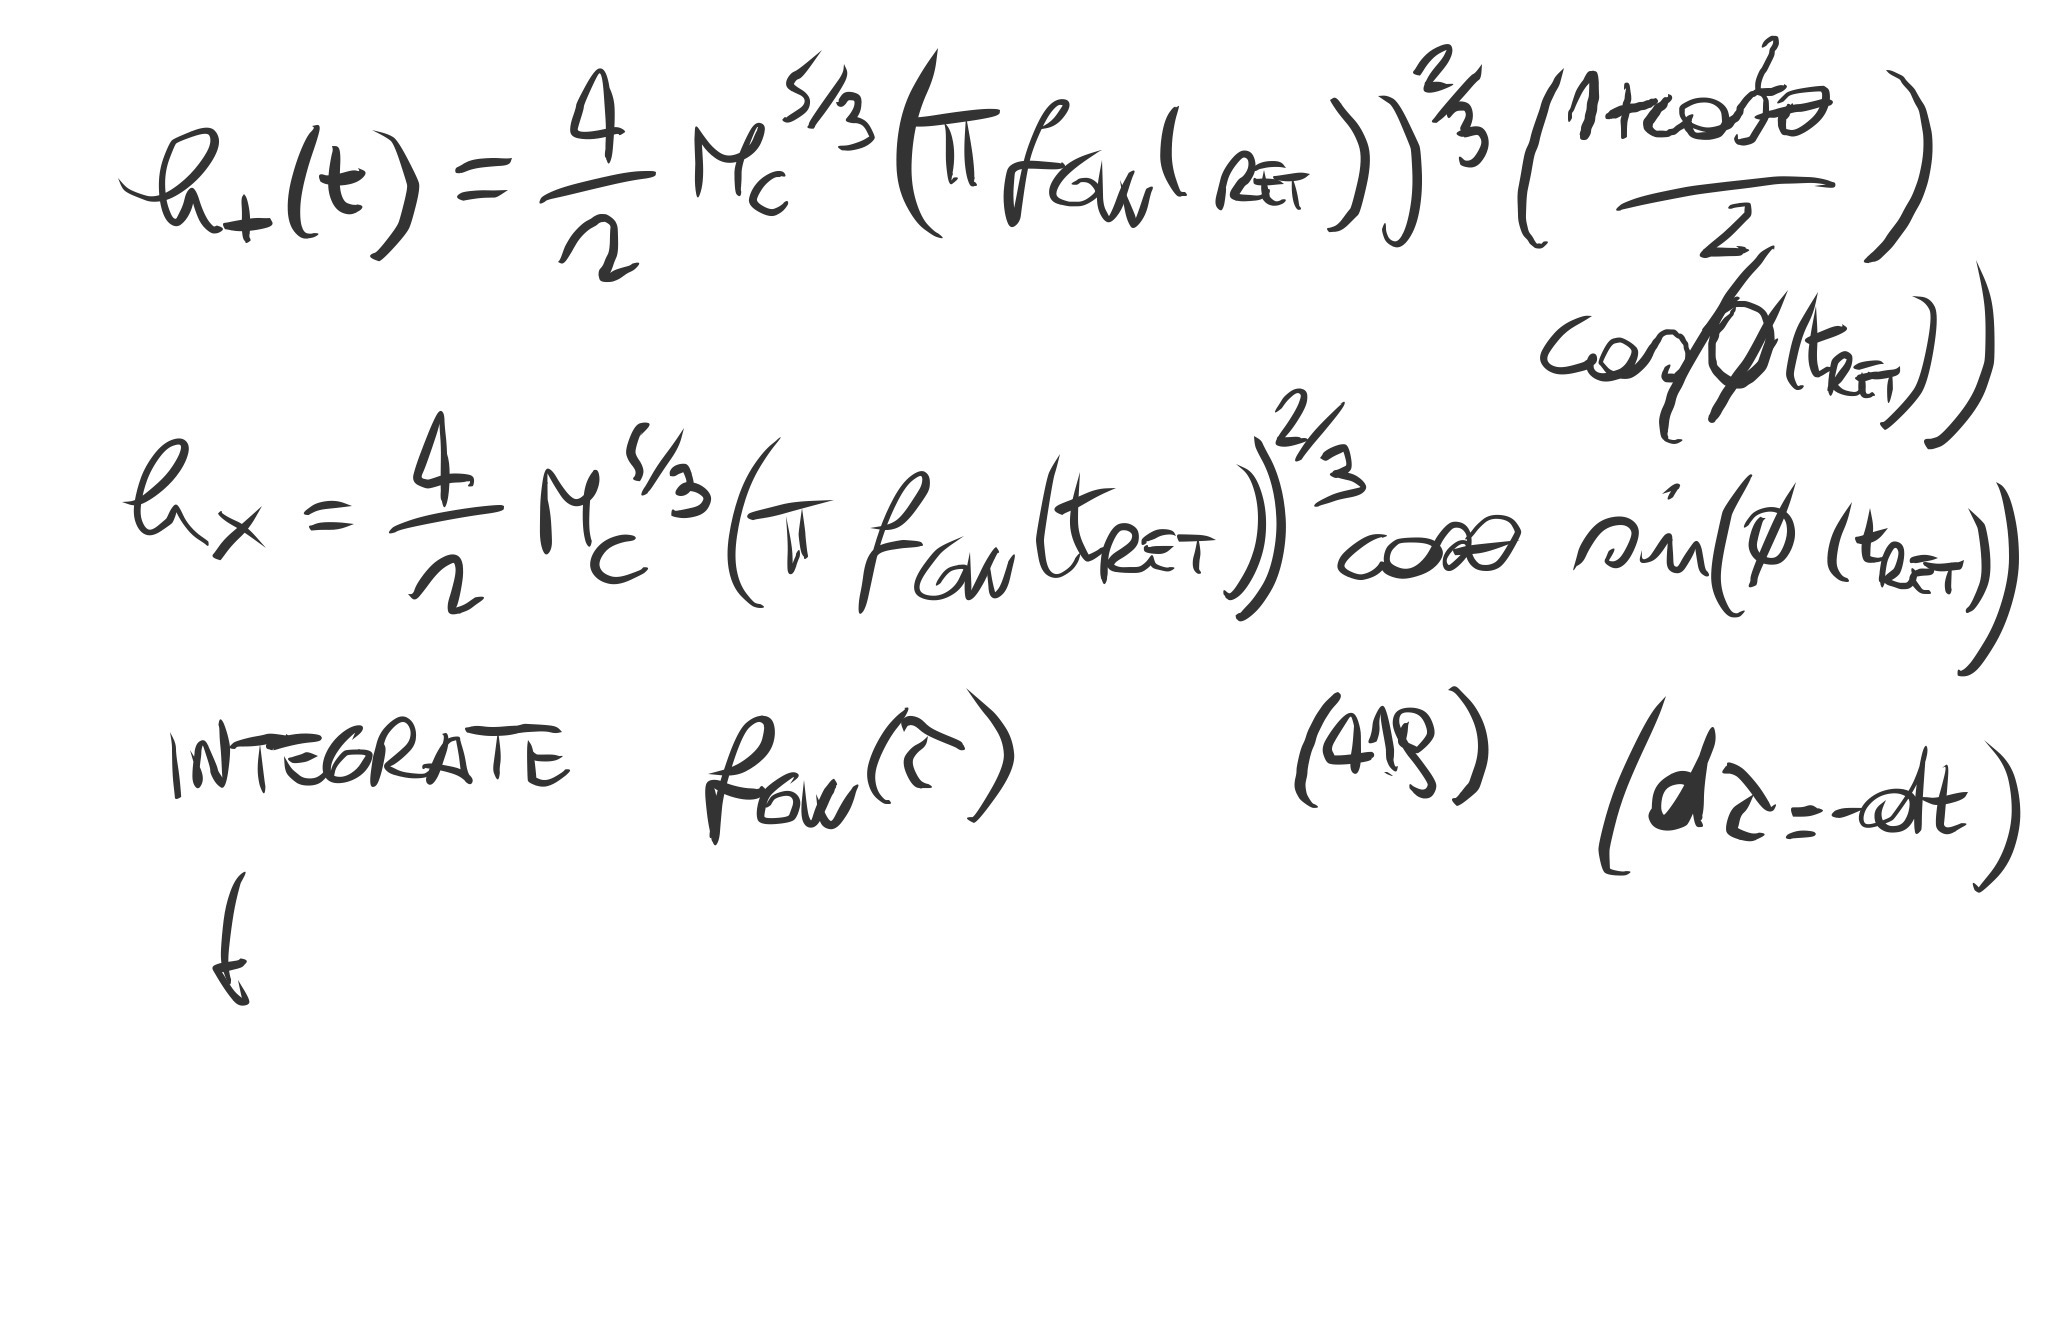 h₊(t) = 4/r M_C^{5/3} (π f_GW( RET))^{2/3} ((1+cos²θ)/2)
cos(ϕ(t_RET))
h_× = 4/r M_C^{5/3} (π f_GW(t_RET))^{2/3} cosθ sin(ϕ(t_RET))
INTEGRATE f_GW(τ) (419) (dτ=-dt)